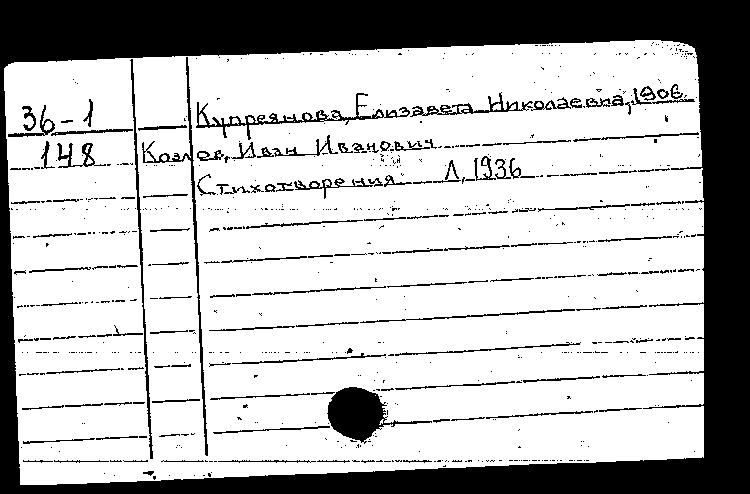 36-1 Купреянова, Елизавета Николаевна, 1906
148 Козлов, Иван Иванович
Стихотворения Л, 1936